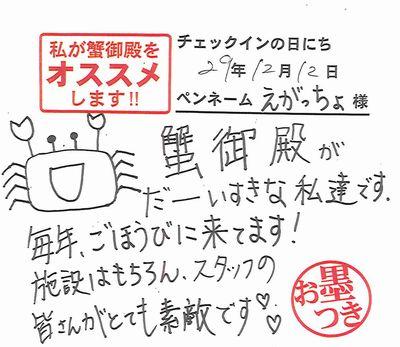 私が蟹御殿を
オススメ
します!!
チェックインの日にち
29年12月12日
ペンネーム えがっちょ 様
蟹御殿が
だーいすきな私達です.
毎年、ごほうびに来てます!
施設はもちろん、スタッフの
皆さんがとても素敵です♡♡
お墨つき